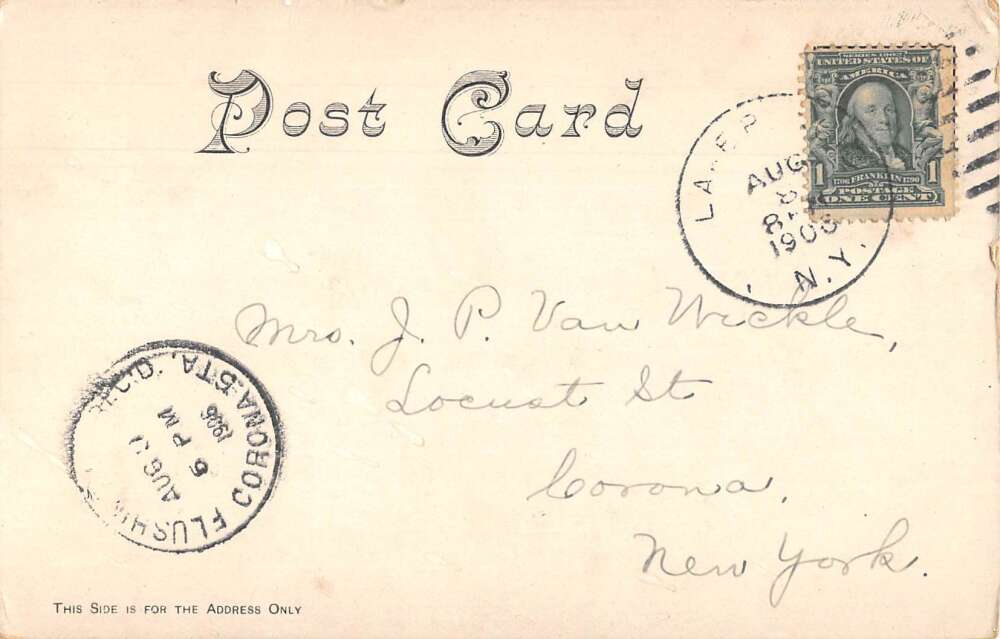 Post Card
SERIES 1902
UNITED STATES OF
AMERICA
1 1706 FRANKLIN 1790 1
POSTAGE
ONE CENT
AUG
8
1906
N.Y.
Mrs. J. P. Van Wickle,
Locust St
Corona,
New York.
FLUSHIN
CORONA STA.
AUG
6 PM
1906
THIS SIDE IS FOR THE ADDRESS ONLY